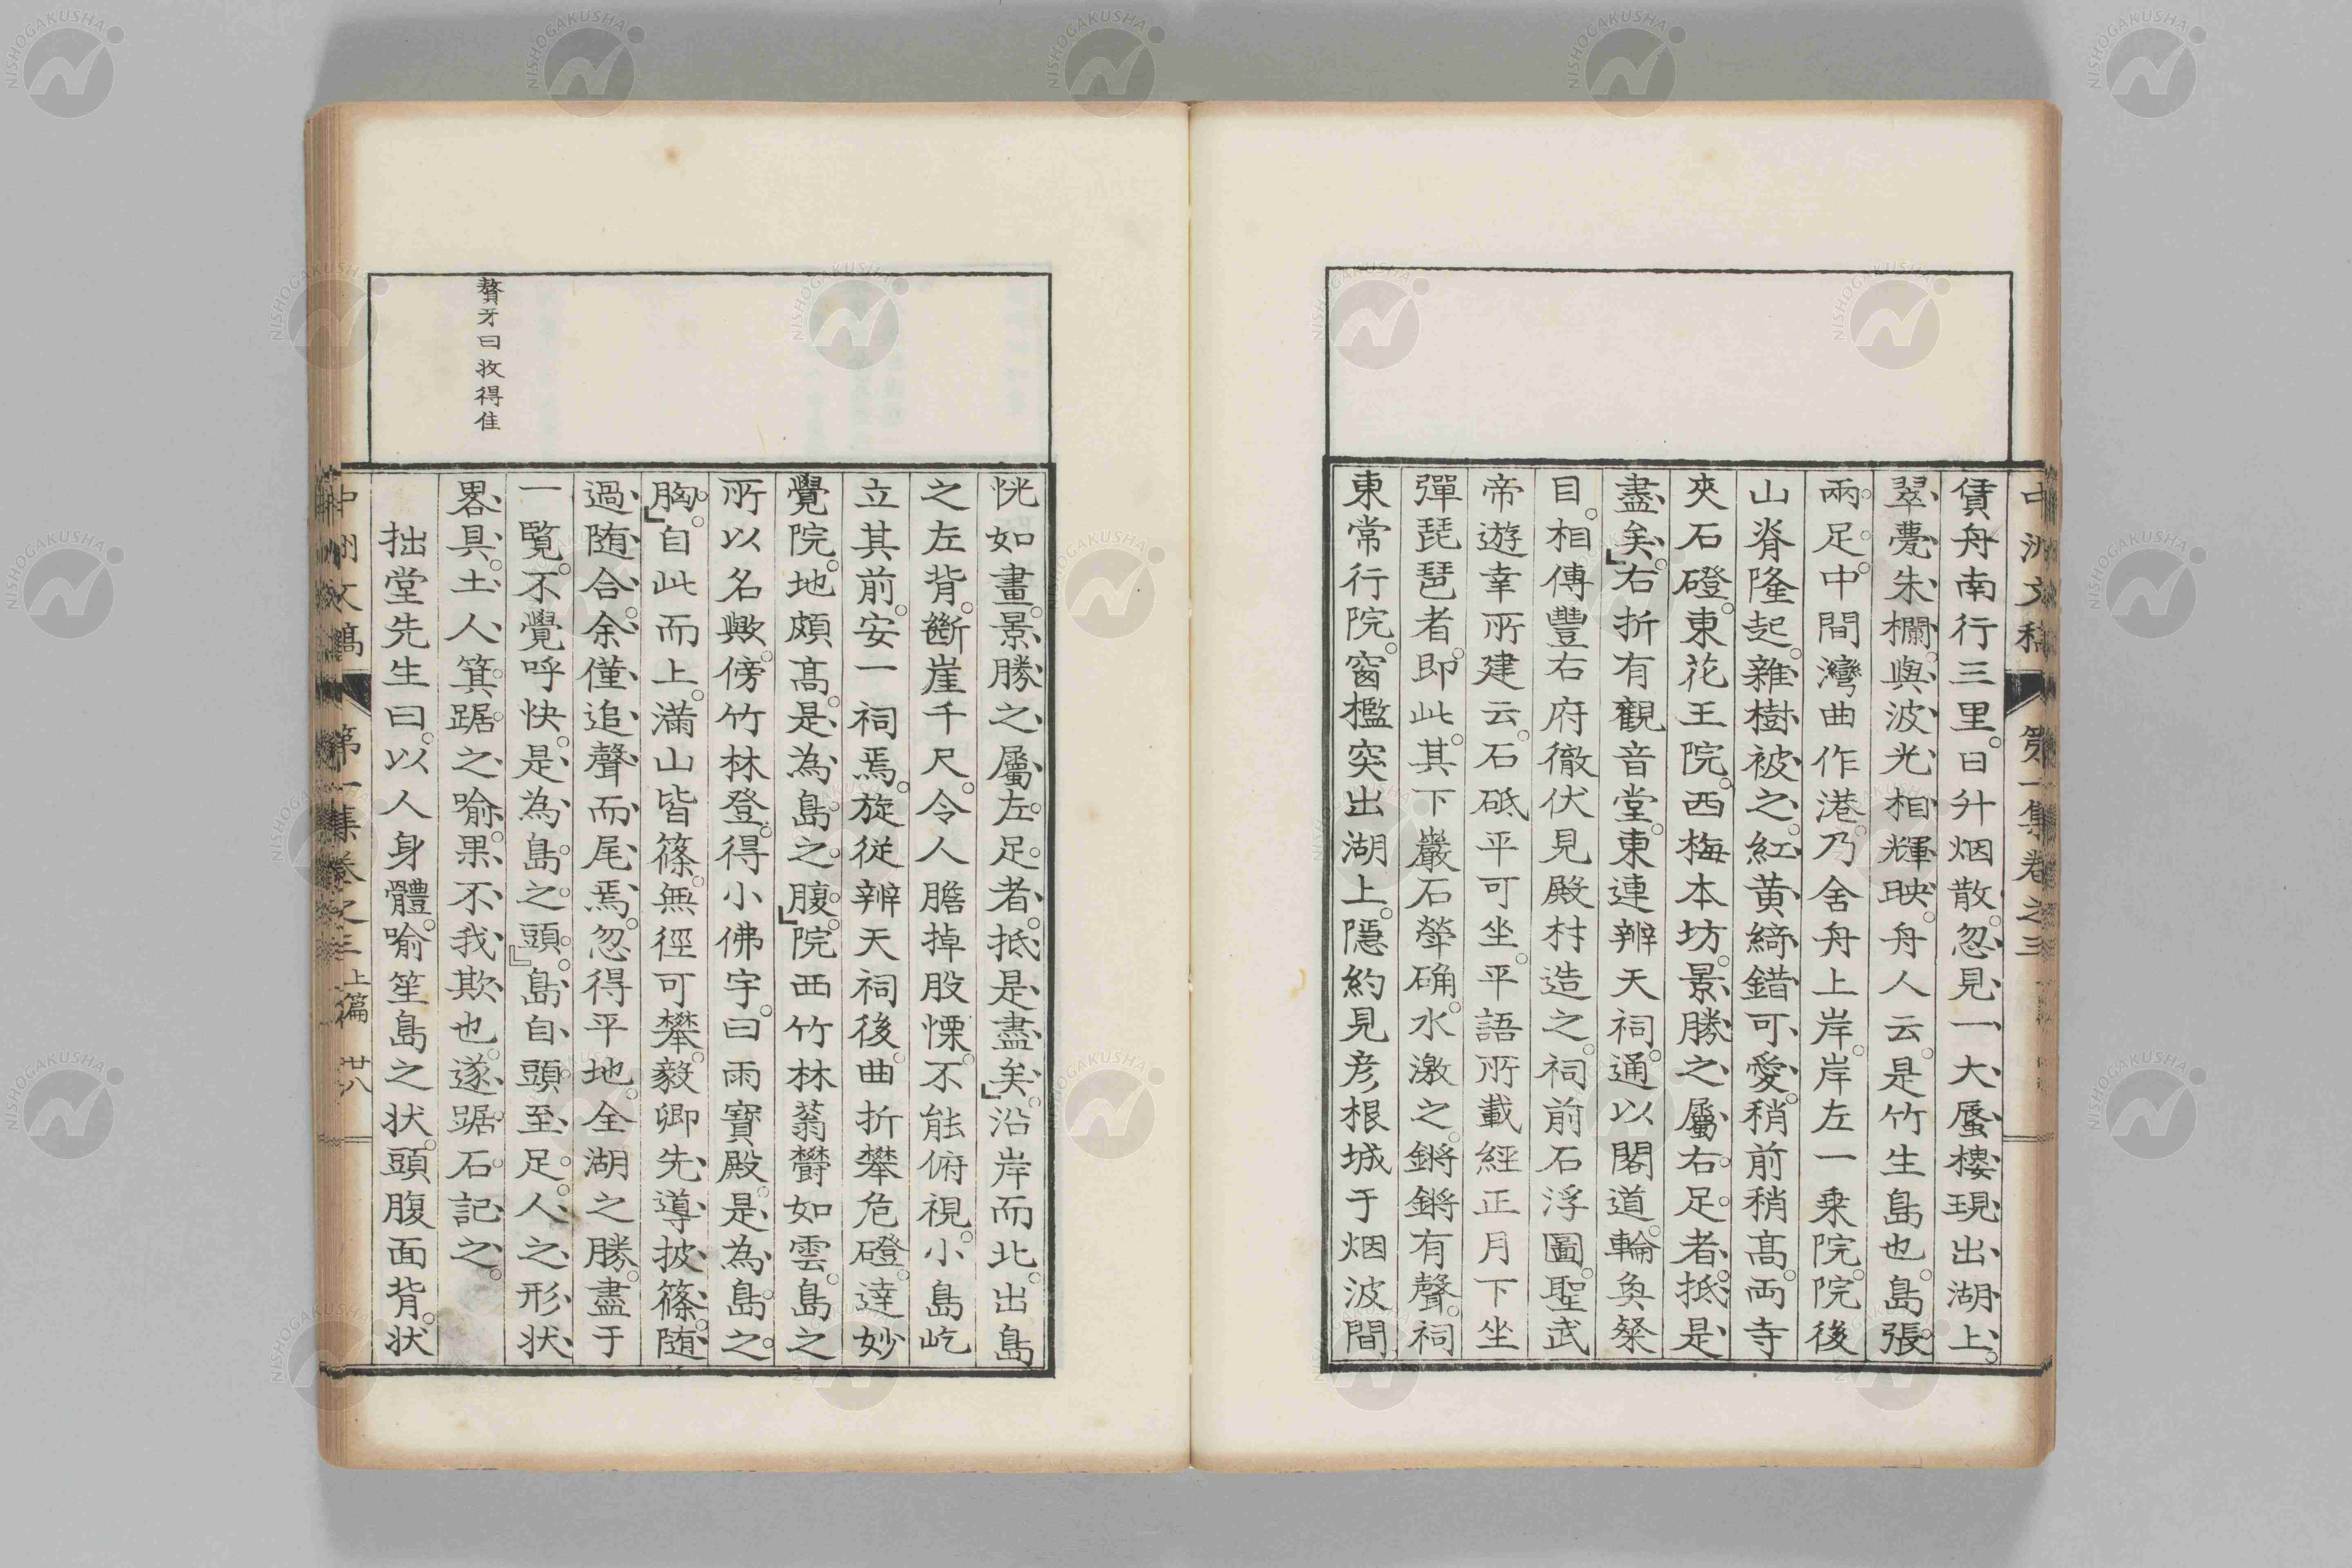 中洲文稿 第一集卷之三
賃舟南行三里。日升烟散。忽見一大蜃樓現出湖上。
翠甍朱欄與波光相輝映。舟人云。是竹生島也。島張
兩足。中間灣曲作港。乃舍舟上岸。岸左一乗院。院後
山脊隆起。雜樹被之。紅黄綺錯可愛。稍前稍髙。両寺
夾石磴。東花王院。西梅本坊。景勝之屬右足者。抵是
盡矣。」右折有觀音堂。東連辨天祠。通以閣道。輪奐粲
目。相傳豐右府徹伏見殿材造之。祠前石浮圖。聖武
帝遊幸所建云。石砥平可坐。平語所載經正月下坐
彈琵琶者。即此。其下巖石犖确。水激之。鏘鏘有聲。祠
東常行院。窗檻突出湖上。隱約見彦根城于烟波間。
恍如畫。景勝之屬左足者。抵是盡矣。」沿岸而北。出島
之左背。斷崖千尺。令人膽掉股慄。不能俯視。小島屹
立其前。安一祠焉。旋従辨天祠後。曲折攀危磴。達妙
覺院。地頗髙。是為島之腹。」院西竹林蓊欝如雲。島之
所以名歟。傍竹林登。得小佛宇。曰雨寶殿。是為島之
胸。」自此而上。滿山皆篠。無徑可攀。毅卿先導披篠。随
過随合。余僅追聲而尾焉。忽得平地。全湖之勝。盡于
一覧。不覺呼快。是為島之頭。」島自頭至足。人之形状
畧具。土人箕踞之喻。果不我欺也。遂踞石記之。
拙堂先生曰。以人身體。喻笙島之状。頭腹面背。状
贅牙曰收得佳
中洲文稿 第一集卷之三上篇 廿八